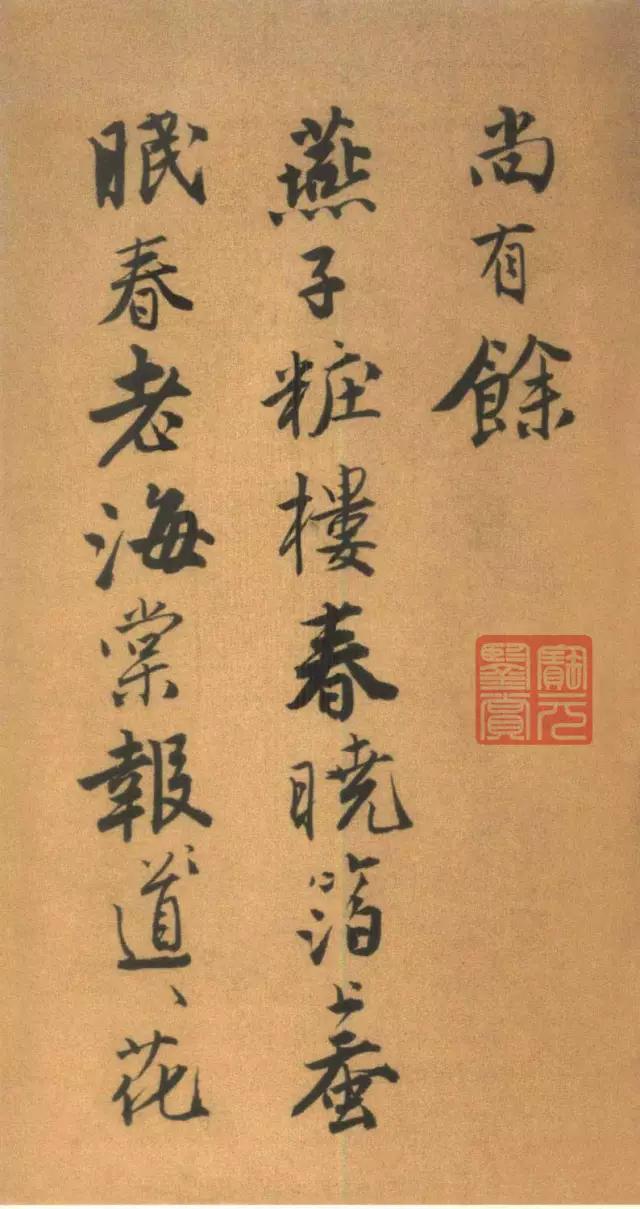 尚有餘
燕子粧樓春曉箔上蚕
眠春老海棠報道、花
寶元
鑒賞